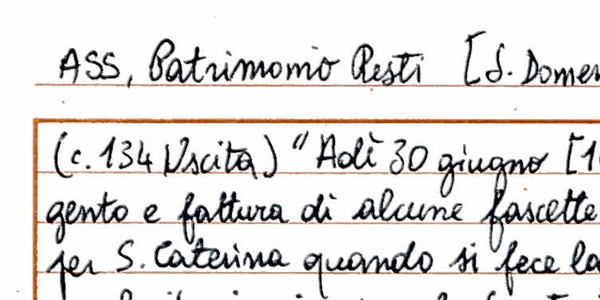 ASS, Patrimonio Resti [S. Domen
(c. 134 Uscita) "Adì 30 giugno [1
gento e fattura di alcune fascette
per S. Caterina quando si fece la